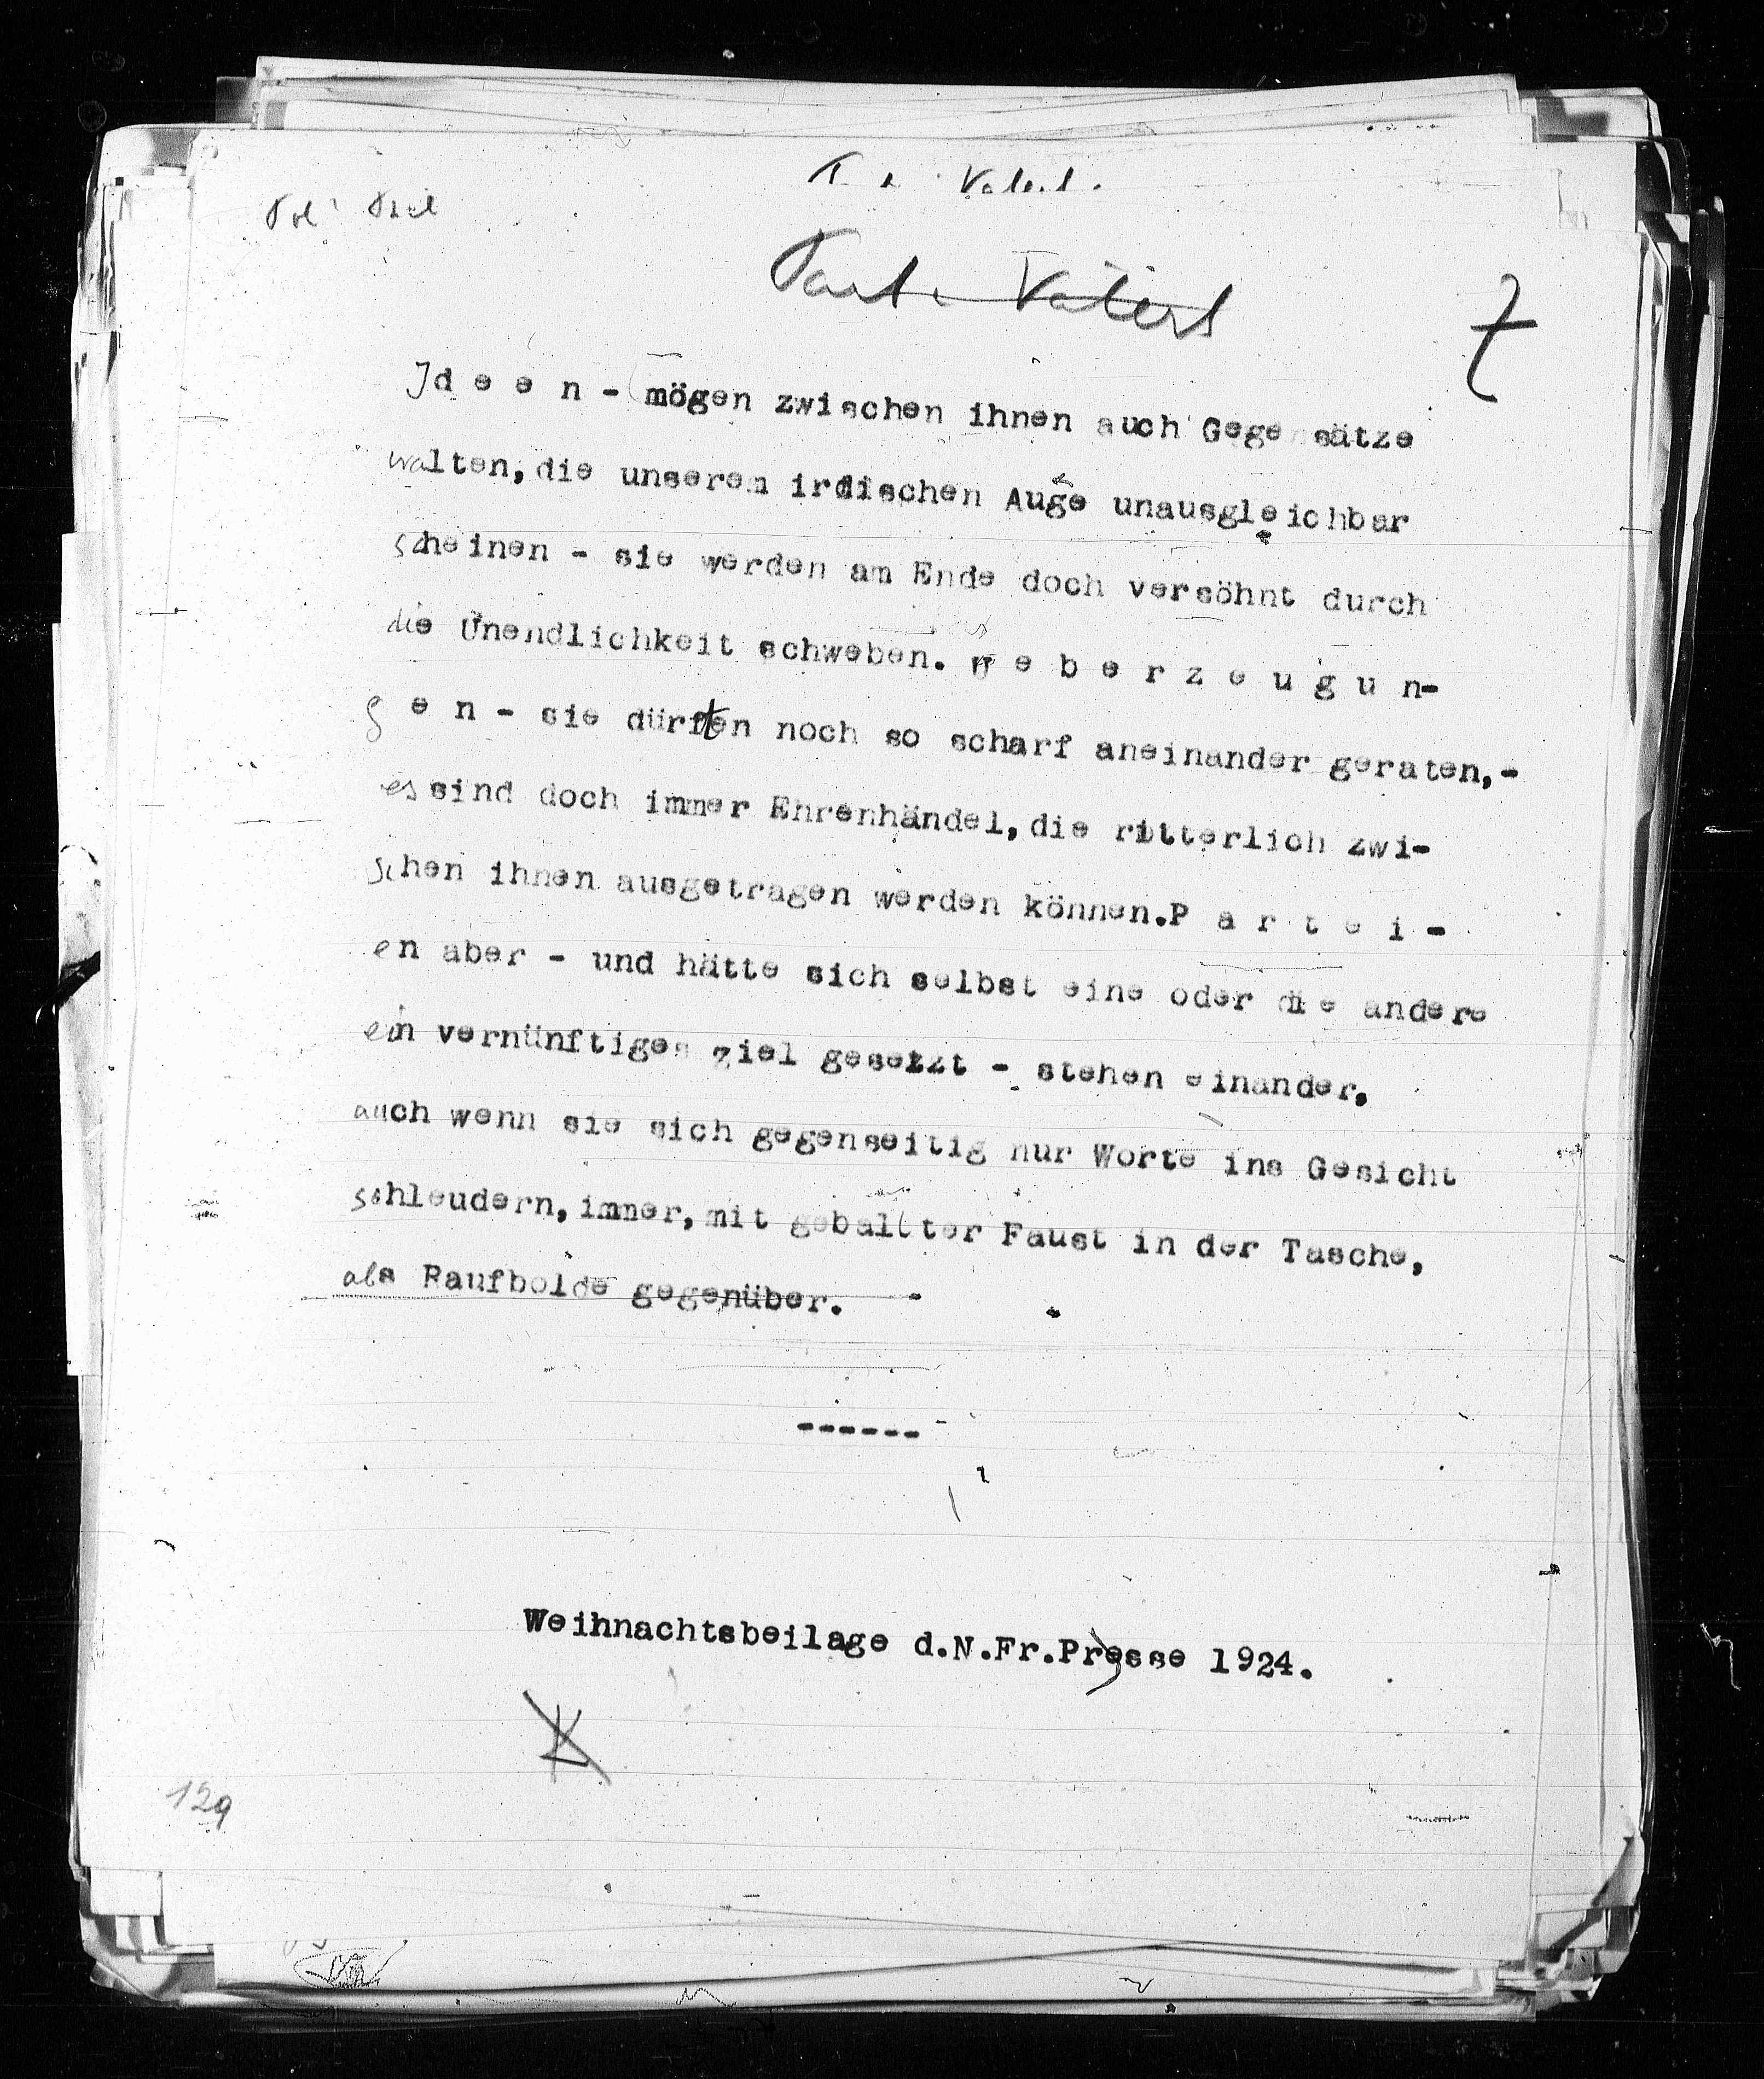 7
Ideen - mögen zwischen ihnen auch Gegensätze
walten, die unserem irdischen Auge unausgleichbar
scheinen - sie werden am Ende doch versöhnt durch
die Unendlichkeit schweben. U e b e r z e u g u n-
g e n - sie dürften noch so scharf aneinander geraten,-
es sind doch immer Ehrenhändel, die ritterlich zwi-
schen ihnen ausgetragen werden können. P a r t e i -
en aber - und hätte sich selbst eine oder die andere
ein vernünftiges Ziel gesetzt - stehen einander,
auch wenn sie sich gegenseitig nur Worte ins Gesicht
schleudern, immer, mit geballter Faust in der Tasche,
als Raufbolde gegenüber.
------
Weihnachtsbeilage d.N.Fr.Presse 1924.
129